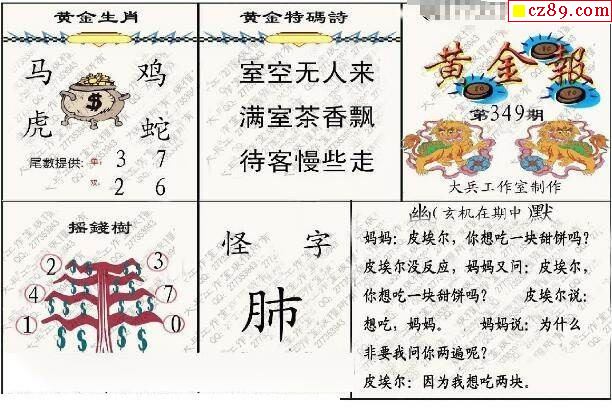 cz89.com
黄金生肖
马 鸡
虎 蛇
$
尾數提供: 单: 3 7
双: 2 6
黄金特碼詩
室空无人来
满室茶香飘
待客慢些走
黄金報
第349期
大兵工作室制作
摇錢樹
2 3
4 7
1 0
怪字
肺
幽(玄机在期中)默
妈妈：皮埃尔，你想吃一块甜饼吗？
皮埃尔没反应，妈妈又问：皮埃尔，
你想吃一块甜饼吗？ 皮埃尔说：
想吃，妈妈。 妈妈说：为什么
非要我问你两遍呢？
皮埃尔：因为我想吃两块。